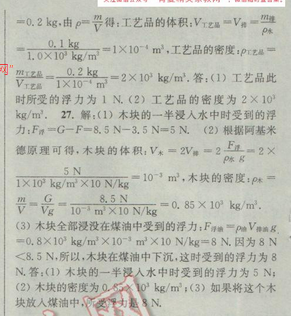 =0.2 kg,由 ρ=m/V 得:工艺品的体积:V工艺品=V排=m排/ρ水
=0.1 kg/1.0×10³ kg/m³=1×10⁻⁴ m³,工艺品的密度:ρ工艺品=
m工艺品/V工艺品=0.2 kg/1×10⁻⁴ m³=2×10³ kg/m³.答:(1)工艺品此
时所受的浮力为 1 N.(2)工艺品的密度为 2×10³
kg/m³. 27. 解:(1)木块的一半浸入水中时受到的浮
力:F浮=G－F=8.5 N－3.5 N=5 N. (2)根据阿基米
德原理可得,木块的体积:V木=2V排=2 F浮/ρ水 g=2×
5 N/1×10³ kg/m³×10 N/kg=10⁻³ m³,木块的密度:ρ木=
m/V=G/Vg=8.5 N/10⁻³ m³×10 N/kg=0.85×10³ kg/m³.
(3)木块全部浸没在煤油中受到的浮力:F浮油=ρ油V排油 g
=0.8×10³ kg/m³×10⁻³ m³×10 N/kg=8 N.因为 8 N
<8.5 N,所以,木块在煤油中下沉,这时受到的浮力为 8
N.答:(1)木块的一半浸入水中时受到的浮力为 5 N;
(2)木块的密度为 0.85×10³ kg/m³;(3)如果将这个木
块放入煤油中,所受浮力是 8 N.